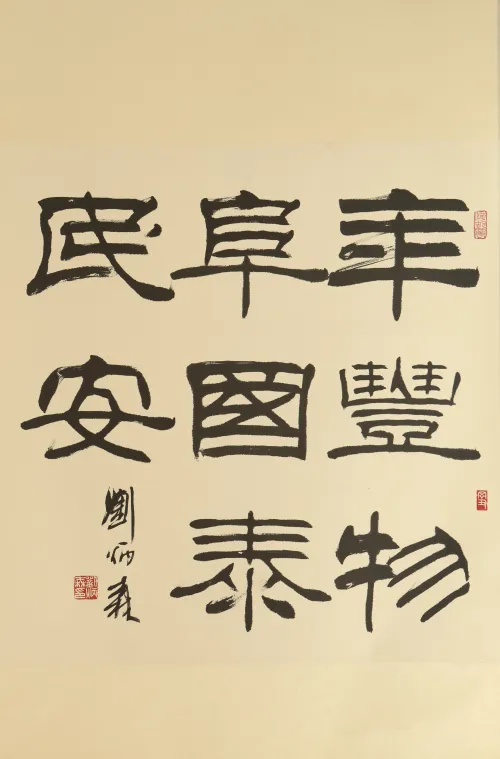 年豐物
阜國泰
民安
劉炳森